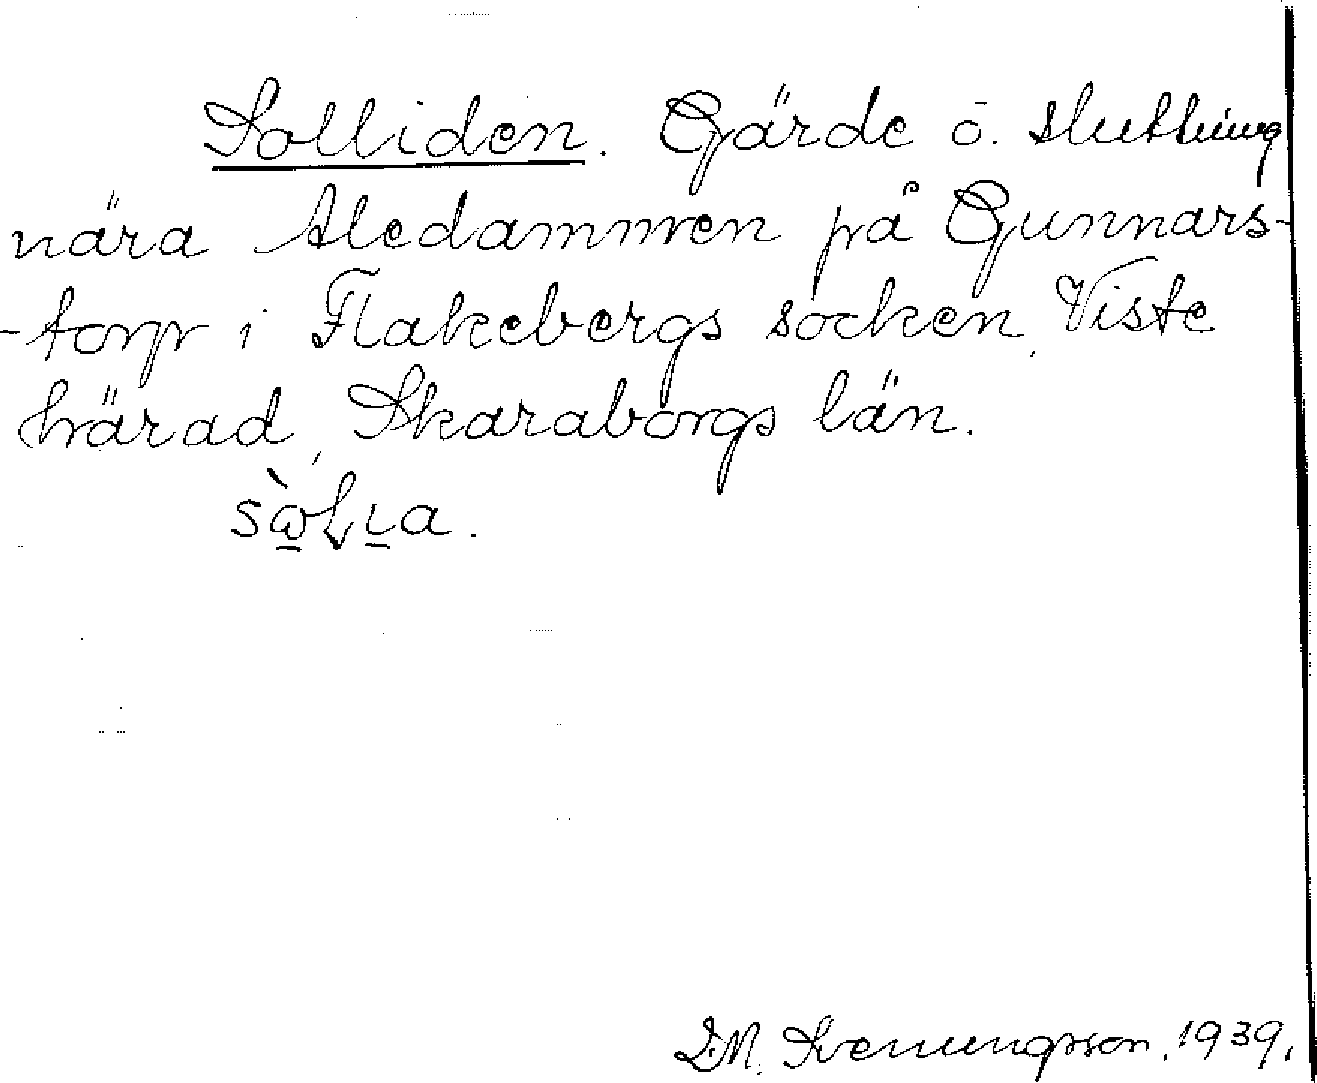 Solliden. Gärde o. sluttning
nära Aledammen på Gunnars-
-torp i Flakebergs socken, Viste
härad, Skaraborgs län.
D.M. Svenungsson. 1939.